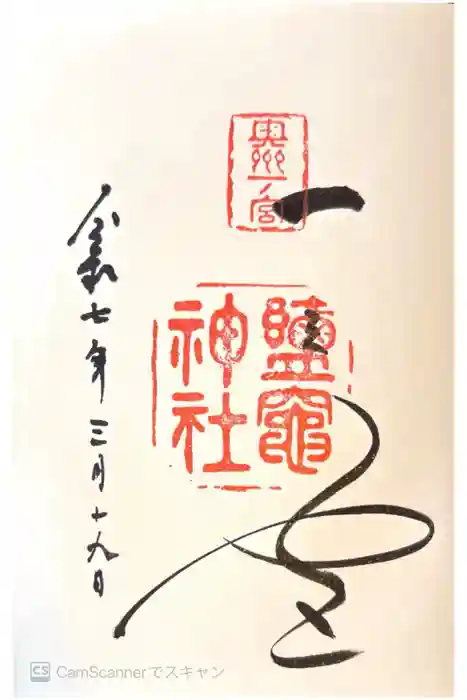 奥州一ノ宮
一之宮
鹽竈神社
令和七年三月十九日
CS CamScannerでスキャン